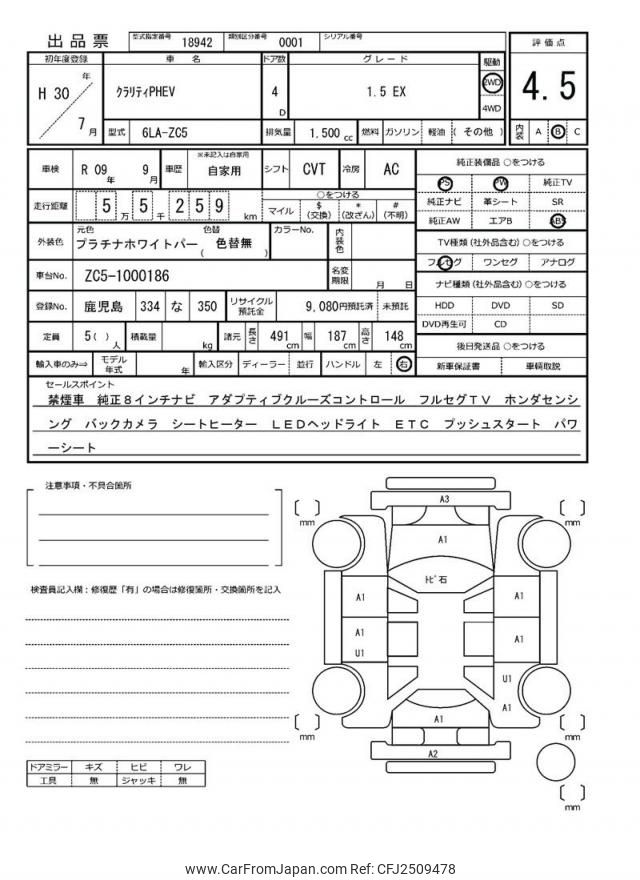 出品票 型式指定番号 18942 類別区分番号 0001 シリアル番号
初年度登録 車 名 ドア数 グレード 駆動 評価点
H 30 年 7 月 クラリティPHEV 4 D 1.5 EX 2WD 4WD 4.5
型式 6LA-ZC5 排気量 1,500 cc 燃料 ガソリン 軽油 ( その他 ) 内装 A B C
車検 R 09 年 9 月 車歴 ※未記入は自家用 自家用 シフト CVT 冷房 AC
走行距離 5 万 5 千 2 5 9 km ○をつける マイル $ (交換) * (改ざん) # (不明)
外装色 元色 プラチナホワイトパー 色替 ( 色替無 ) カラーNo. 内装色
車台No. ZC5-1000186 名変期限 月 日
登録No. 鹿児島 334 な 350 リサイクル預託金 9,080円預託済 未預託
定員 5 ( ) 人 積載量 kg 諸元 長さ 491 cm 幅 187 cm 高さ 148 cm
輸入車のみ⇒ モデル年式 年 輸入区分 ディーラー 並行 ハンドル 左 右
純正装備品 ○をつける
PS PW 純正TV
純正ナビ 革シート SR
純正AW エアB ABS
TV種類 (社外品含む) ○をつける
フルセグ ワンセグ アナログ
ナビ種類 (社外品含む) ○をつける
HDD DVD SD
DVD再生可 CD
後日発送品 ○をつける
新車保証書 車輌取説
セールスポイント
禁煙車 純正8インチナビ アダプティブクルーズコントロール フルセグTV ホンダセンシ
ング バックカメラ シートヒーター LEDヘッドライト ETC プッシュスタート パワ
ーシート
注意事項・不具合箇所
検査員記入欄：修復歴「有」の場合は修復箇所・交換箇所を記入
ドアミラー キズ ヒビ ワレ
工具 無 ジャッキ 無
A3
[ ] mm [ ] mm
A1
ﾄﾋﾞ石
A1 A1
A1 A1
U1
U1
A1
A1
[ ] mm [ ] mm
A2
[ ] mm
www.CarFromJapan.com Ref: CFJ2509478